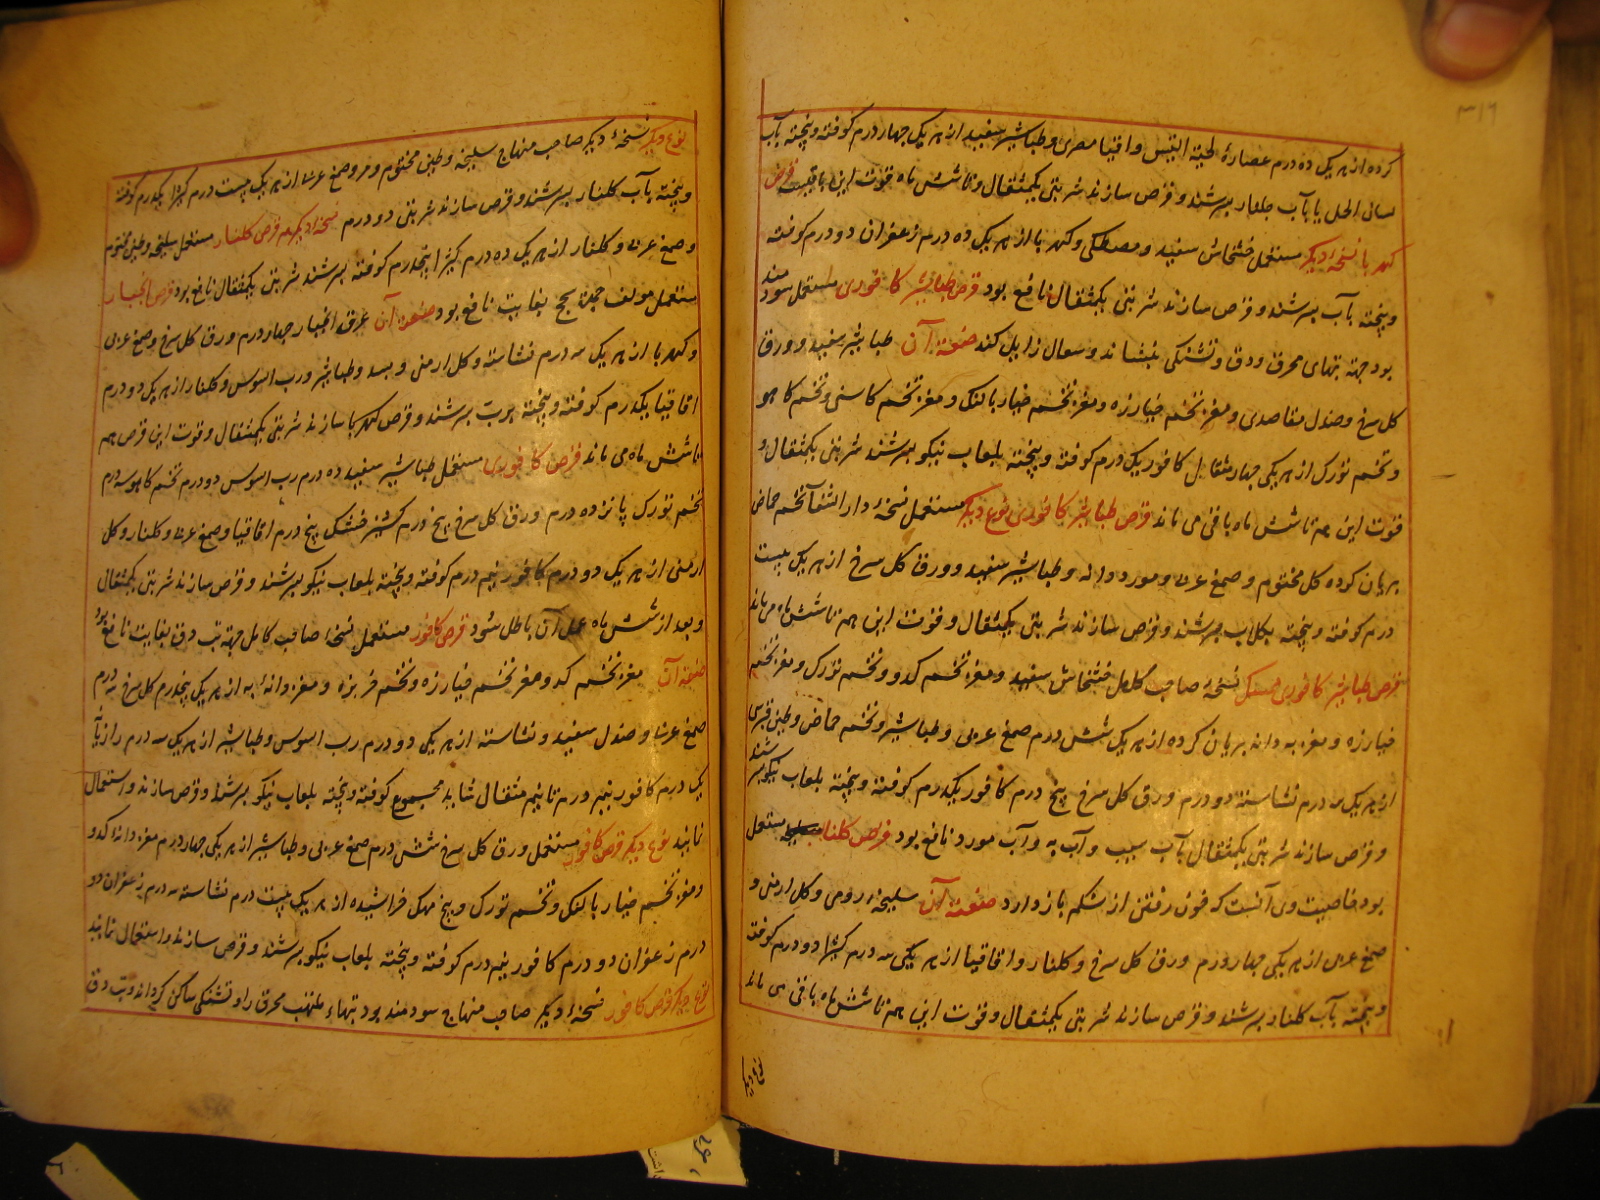 ۳۱۶
کرده از هر یک ده درم عصارهٔ لحیة التیس و اقاقیا مصری و طباشیر سفید از هر یک چهار درم کوفته و پخته بآب
لسان الحمل یا بآب جلنار بسرشند و قرص سازند شربتی یکمثقال و تا شش ماه قوت این باقیست قرص
کهربا نسخهٔ دیگر مستعمل خشخاش سفید و مصطکی و کهربا از هر یک ده درم زعفران دو درم کوفته
و پخته بآب بسرشند و قرص سازند شربتی یکمثقال نافع بود قرص طباشیر کافوری مستعمل سودمند
بود جهة تبهای محرق و دق و تشنگی بنشاند و سعال زایل کند صنعة آن طباشیر سفید و ورق
کل سرخ و صندل مقاصدی و مغز تخم خیارزه و مغز تخم خیار بالنک و مغز تخم کاسنی و تخم کاهو
و تخم تورک از هر یکی چهار مثقال کافور یک درم کوفته و پخته بلعاب نیکو بسرشند شربتی یکمثقال و
قوت این هم تا شش ماه باقی می ماند قرص طباشیر کافوری نوع دیگر مستعمل نسخهٔ دار الشفا تخم حماض
بریان کرده کل مختوم و صمغ عربی و مورد دانه و طباشیر سفید و ورق کل سرخ از هر یک بیست
درم کوفته و پخته بکلاب بسرشند و قرص سازند شربتی یکمثقال و قوت این هم تا شش ماه می ماند
قرص طباشیر کافوری ممسک نسخهٔ صاحب کامل خشخاش سفید و مغز تخم کدو و تخم تورک و مغز تخم
خیارزه و مغز به دانه بریان کرده از هر یک شش درم صمغ عربی و طباشیر و تخم حماض و طین قبرس
از هر یک سه درم نشاسته دو درم ورق کل سرخ پنج درم کافور یکدرم کوفته و پخته بلعاب نیکو بسرشند
و قرص سازند شربتی یکمثقال بآب سیب و آب به و آب مورد نافع بود قرص کلنار مستعمل
بود خاصیت وی آنست که خون رفتن از شکم باز دارد صنعة آن سلیخه رومی و کل ارمنی و
صمغ عربی از هر یکی چهار درم ورق کل سرخ و کلنار و اقاقیا از هر یکی سه درم کتیرا دو درم کوفته
و پخته بآب کلنار بسرشند و قرص سازند شربتی یکمثقال و قوت این هم تا شش ماه باقی می ماند
نوع دیگر
نوع دیگر نسخهٔ دیگر صاحب منهاج سلیخه و طین مختوم و مر و صمغ عربی از هر یک بیست درم کتیرا یکدرم کوفته
و پخته بآب کلنار بسرشند و قرص سازند شربتی دو درم نسخهٔ دیگر هم قرص کلنار مستعمل سلیخه و طین مختوم
و صمغ عربی و کلنار از هر یک ده درم کتیرا پنجدرم کوفته بسرشند شربتی یکمثقال نافع بود قرص انجبار
مستعمل مولف جهة سحج بغایت نافع بود صنعة آن عرق انجبار چهار درم ورق کل سرخ و صمغ عربی
و کهربا از هر یک سه درم نشاسته و کل ارمنی و بسد و طباشیر و رب السوس و کلنار از هر یک دو درم
اقاقیا یکدرم کوفته و پخته برب بسرشند و قرص کهربا سازند شربتی یکمثقال و قوت این قرص هم
تا شش ماه می ماند قرص کافوری مستعمل طباشیر سفید ده درم رب السوس دو درم تخم کاهو سه درم
تخم تورک پانزده درم ورق کل سرخ پنج درم کشنیز خشک پنج درم اقاقیا و صمغ عربی و کلنار و کل
ارمنی از هر یک دو درم کافور نیم درم کوفته و پخته بلعاب نیکو بسرشند و قرص سازند شربتی یکمثقال
و بعد از شش ماه عمل آن باطل شود قرص کافور مستعمل نسخهٔ صاحب کامل جهة تب دق بغایت نافع بود
صنعة آن مغز تخم کدو مغز تخم خیارزه و تخم خربزه و مغز دانهٔ به از هر یک پنجدرم کل سرخ سه درم
صمغ عربی و صندل سفید و نشاسته از هر یکی دو درم رب السوس و طباشیر از هر یک سه درم رازیانه
یک درم کافور نیم درم تا نیم مثقال شاید مجموع کوفته و پخته بلعاب نیکو بسرشند و قرص سازند و استعمال
نمایند نوع دیگر قرص کافور مستعمل ورق کل سرخ شش درم صمغ عربی و طباشیر از هر یکی چهار درم مغز دانهٔ کدو
و مغز تخم خیار بالنک و تخم تورک و بیخ مهک خراشیده از هر یک بیست درم نشاسته سه درم زعفران دو
درم زعفران دو درم کافور نیم درم کوفته و پخته بلعاب نیکو بسرشند و قرص سازند و استعمال نمایند
نوع دیگر قرص کافور نسخهٔ دیگر صاحب منهاج سودمند بود تبهاء ملتهب محرق را و تشنگی ساکن کرداند و تب دق